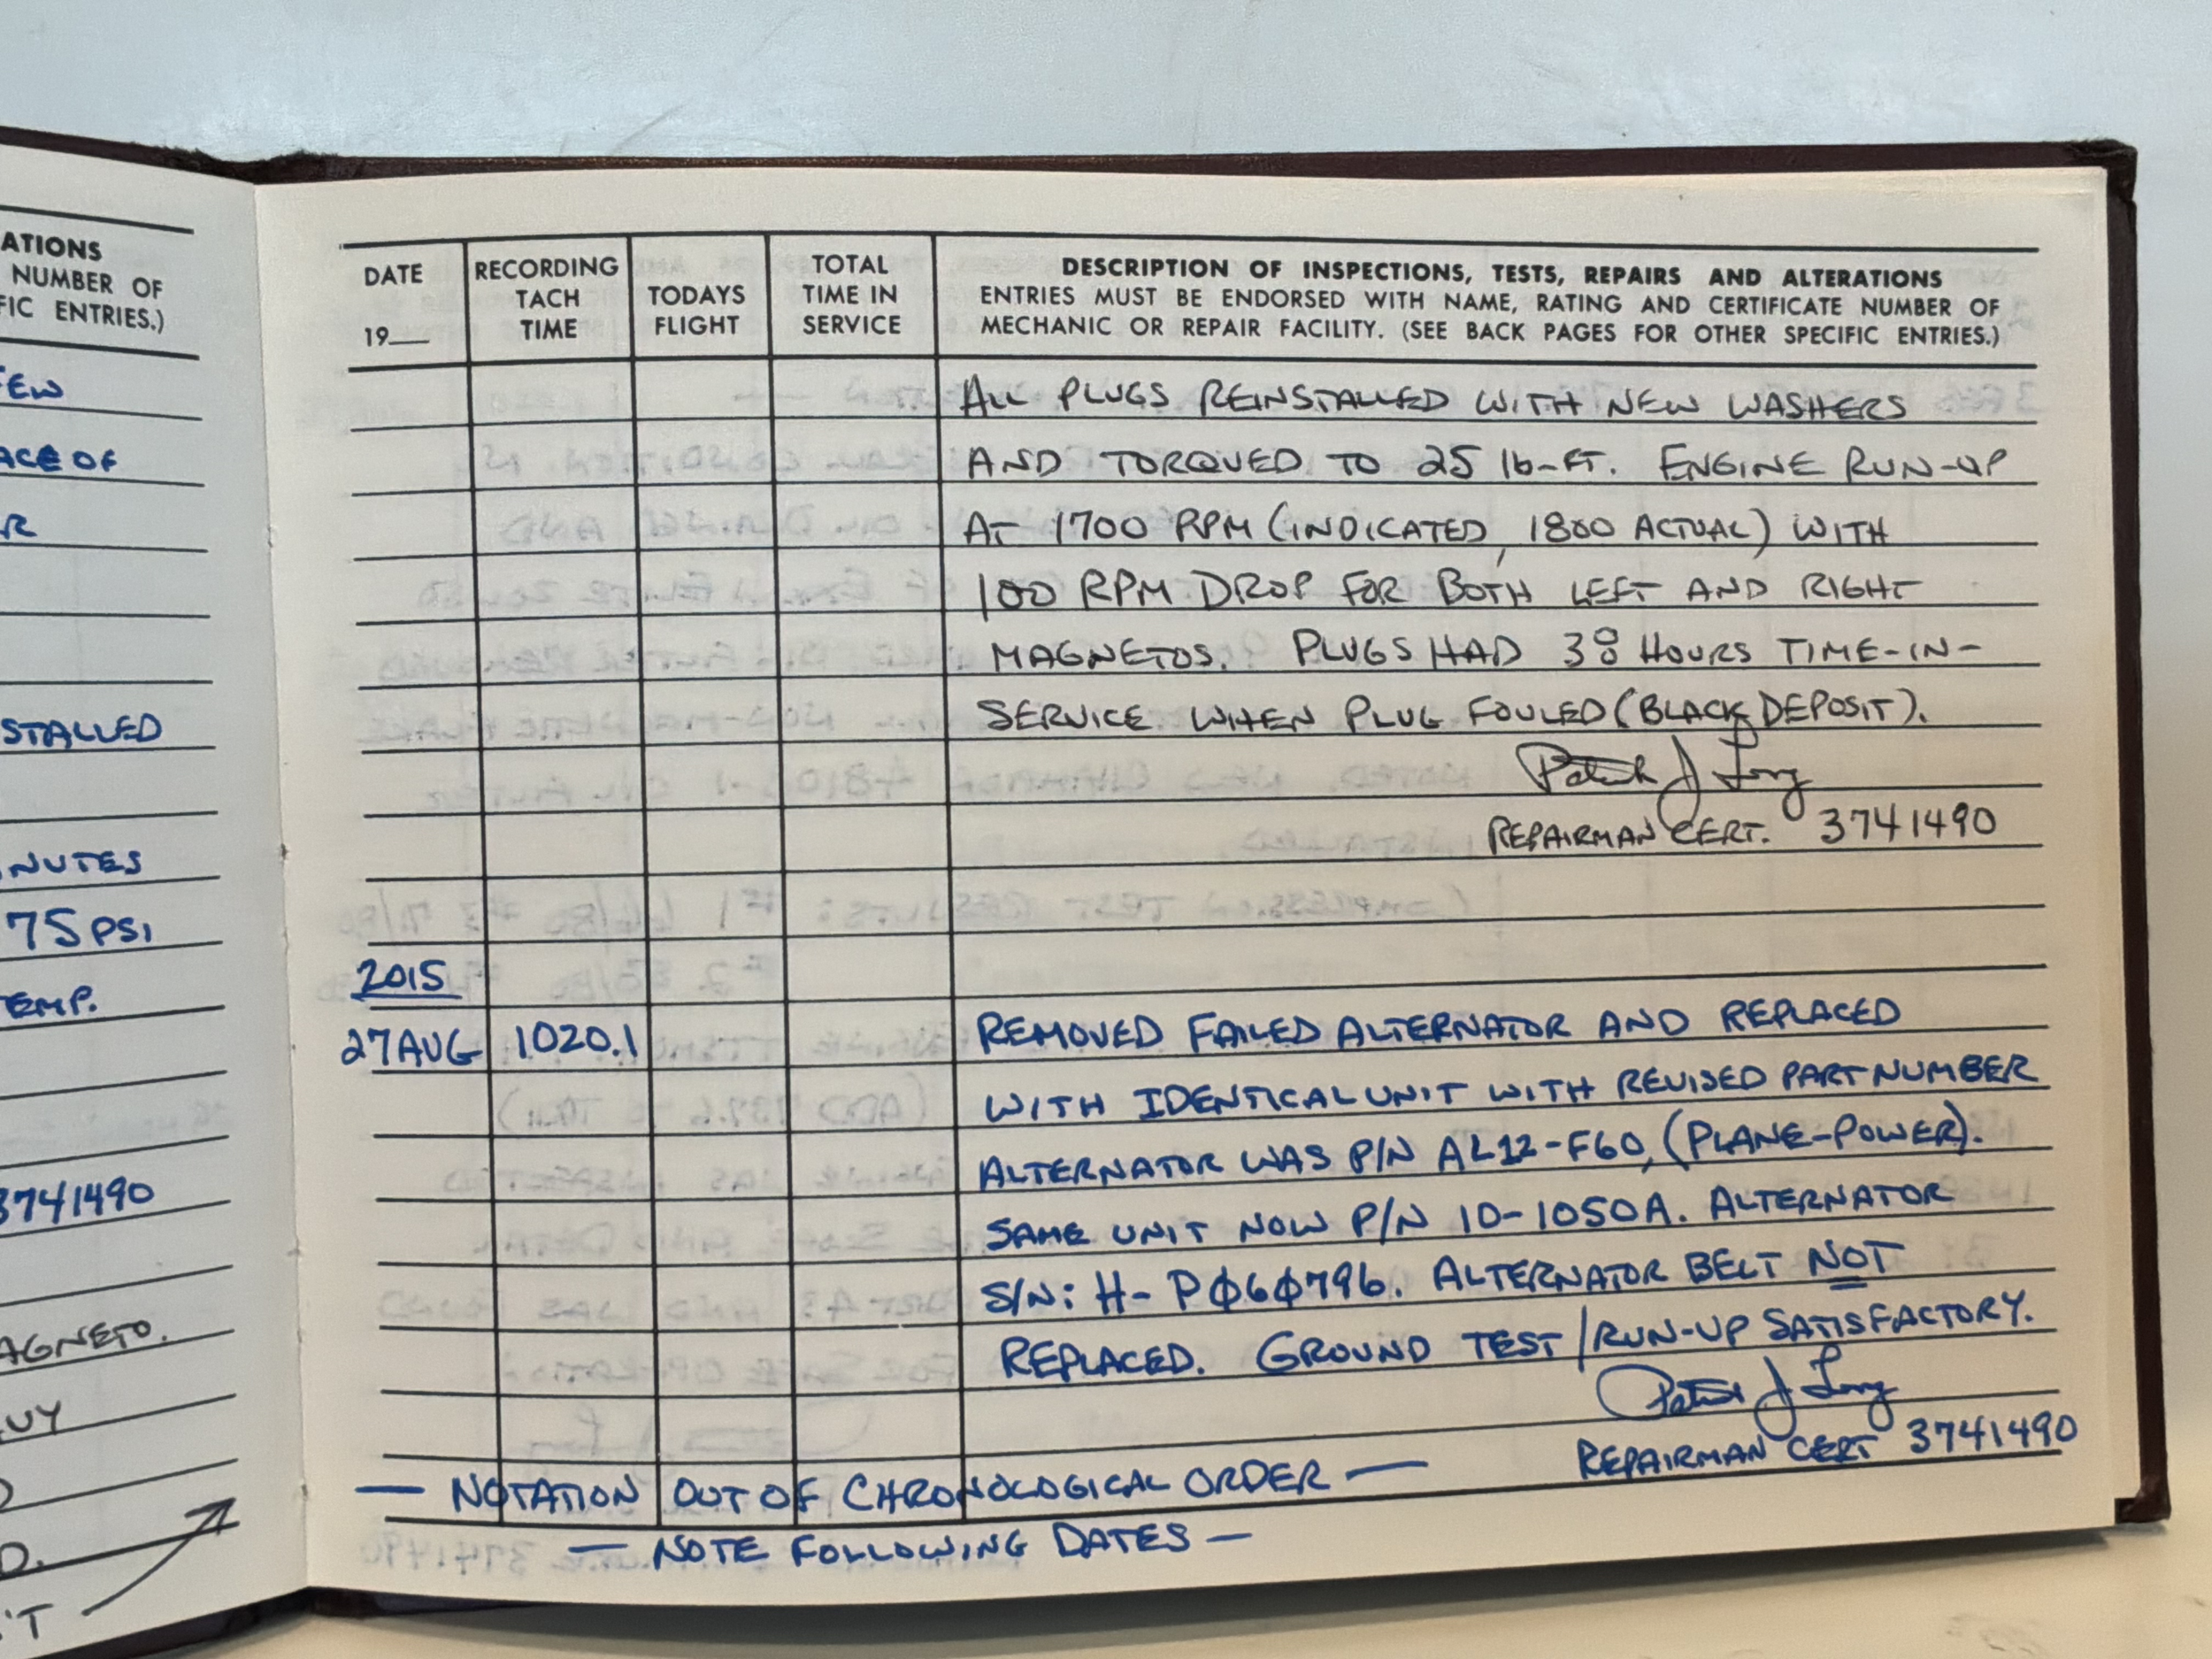 ATIONS
NUMBER OF
FIC ENTRIES.)
EW
ACE OF
R
STALLED
NUTES
75 PSI
EMP.
3741490
AGNETO.
UY
D
D.
'T
DATE
19__
RECORDING
TACH
TIME
TODAYS
FLIGHT
TOTAL
TIME IN
SERVICE
DESCRIPTION OF INSPECTIONS, TESTS, REPAIRS AND ALTERATIONS
ENTRIES MUST BE ENDORSED WITH NAME, RATING AND CERTIFICATE NUMBER OF
MECHANIC OR REPAIR FACILITY. (SEE BACK PAGES FOR OTHER SPECIFIC ENTRIES.)
ALL PLUGS REINSTALLED WITH NEW WASHERS
AND TORQUED TO 25 lb-FT. ENGINE RUN-UP
AT 1700 RPM (INDICATED, 1800 ACTUAL) WITH
100 RPM DROP FOR BOTH LEFT AND RIGHT
MAGNETOS. PLUGS HAD 38 HOURS TIME-IN-
SERVICE WHEN PLUG FOULED (BLACK DEPOSIT).
Patrick J Long
REPAIRMAN CERT. 3741490
2015
27AUG 1020.1 REMOVED FAILED ALTERNATOR AND REPLACED
WITH IDENTICAL UNIT WITH REVISED PART NUMBER
ALTERNATOR WAS P/N AL12-F60, (PLANE-POWER).
SAME UNIT NOW P/N 10-1050A. ALTERNATOR
S/N: H-PØ6Ø796. ALTERNATOR BELT NOT
REPLACED. GROUND TEST/RUN-UP SATISFACTORY.
Patrick J Long
REPAIRMAN CERT 3741490
— NOTATION OUT OF CHRONOLOGICAL ORDER —
— NOTE FOLLOWING DATES —